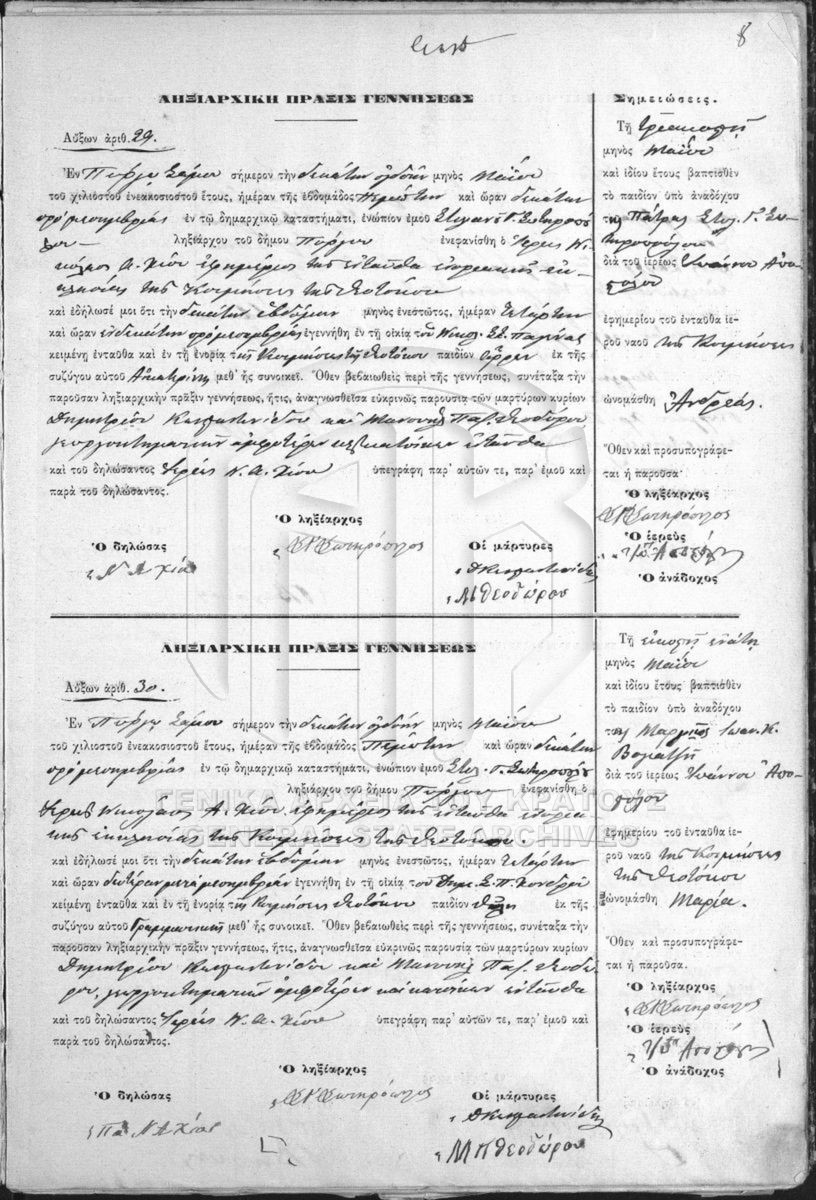 8
ΛΗΞΙΑΡΧΙΚΗ ΠΡΑΞΙΣ ΓΕΝΝΗΣΕΩΣ
Αὔξων ἀριθ. 29.
Ἐν Πύργῳ Σάμου σήμερον τὴν δεκάτην ὀγδόην μηνὸς Μαΐου
τοῦ χιλιοστοῦ ἐνεακοσιοστοῦ ἔτους, ἡμέραν τῆς ἑβδομάδος Πέμπτην καὶ ὥραν δεκάτην
πρὸ μεσημβρίας ἐν τῷ δημαρχικῷ καταστήματι, ἐνώπιον ἐμοῦ Στυλιανοῦ Γ. Σωτηροπού
λου ληξιάρχου τοῦ δήμου Πύργου ἐνεφανίσθη ὁ Ἱερεὺς Νι
κόλαος Α. Χίου ἐφημέριος τῆς ἐνταῦθα ἐκ
κλησίας τῆς Κοιμήσεως τῆς Θεοτόκου
καὶ ἐδήλωσέ μοι ὅτι τὴν δεκάτην ἑβδόμην μηνὸς ἐνεστῶτος, ἡμέραν Τετάρτην
καὶ ὥραν ἑνδεκάτην πρὸ μεσημβρίας ἐγεννήθη ἐν τῇ οἰκίᾳ τοῦ Νικολ. Στ.
κειμένῃ ἐνταῦθα καὶ ἐν τῇ ἐνορίᾳ τῆς Κοιμήσεως τῆς Θεοτόκου παιδίον ἄρρεν ἐκ τῆς
συζύγου αὐτοῦ Αἰκατερίνης μεθ᾽ ἧς συνοικεῖ. Ὅθεν βεβαιωθεὶς περὶ τῆς γεννήσεως, συνέταξα τὴν
παροῦσαν ληξιαρχικὴν πρᾶξιν γεννήσεως, ἥτις, ἀναγνωσθεῖσα εὐκρινῶς παρουσίᾳ τῶν μαρτύρων κυρίων
Δημητρίου καὶ Μανουὴλ Παπ. Θεοδώρου
ἀμφοτέρων κατοίκων ἐνταῦθα
καὶ τοῦ δηλώσαντος Ἱερέως Ν. Α. Χίου ὑπεγράφη παρ᾽ αὐτῶν τε, παρ᾽ ἐμοῦ καὶ
παρὰ τοῦ δηλώσαντος.
Ὁ ληξίαρχος
Ὁ δηλώσας Σ Γ Σωτηρόπουλος Οἱ μάρτυρες
Ν Α Χίου
Θεοδώρου
Σημειώσεις.
Τῇ τριακοστῇ
μηνὸς Μαΐου
καὶ ἰδίου ἔτους βαπτισθὲν
τὸ παιδίον ὑπὸ ἀναδόχου
Στυλ. Γ. Σω
τηροπούλου
διὰ τοῦ ἱερέως Ἰωάννου Ἀπο
στόλου
ἐφημερίου τοῦ ἐνταῦθα ἱε-
ροῦ ναοῦ τῆς Κοιμήσεως
ὠνομάσθη Ἀνδρέας.
Ὅθεν καὶ προσυπογράφε-
ται ἡ παροῦσα
Ὁ ληξίαρχος
Σ Γ Σωτηρόπουλος
Ὁ ἱερεὺς
Ὁ ἀνάδοχος
ΛΗΞΙΑΡΧΙΚΗ ΠΡΑΞΙΣ ΓΕΝΝΗΣΕΩΣ
Αὔξων ἀριθ. 30.
Ἐν Πύργῳ Σάμου σήμερον τὴν δεκάτην ὀγδόην μηνὸς Μαΐου
τοῦ χιλιοστοῦ ἐνεακοσιοστοῦ ἔτους, ἡμέραν τῆς ἑβδομάδος Πέμπτην καὶ ὥραν δεκάτην
πρὸ μεσημβρίας ἐν τῷ δημαρχικῷ καταστήματι, ἐνώπιον ἐμοῦ Στυλ. Γ. Σωτηροπούλου
ληξιάρχου τοῦ δήμου Πύργου ἐνεφανίσθη ὁ
Ἱερεὺς Νικόλαος Α. Χίου ἐφημέριος τῆς ἐνταῦθα
τῆς ἐκκλησίας τῆς Κοιμήσεως τῆς Θεοτόκου
καὶ ἐδήλωσέ μοι ὅτι τὴν δεκάτην ἑβδόμην μηνὸς ἐνεστῶτος, ἡμέραν Τετάρτην
καὶ ὥραν δευτέραν μετὰ μεσημβρίαν ἐγεννήθη ἐν τῇ οἰκίᾳ τοῦ Δημ. Σ. Π.
κειμένῃ ἐνταῦθα καὶ ἐν τῇ ἐνορίᾳ τῆς Κοιμήσεως Θεοτόκου παιδίον θῆλυ ἐκ τῆς
συζύγου αὐτοῦ Γραμματικῆς μεθ᾽ ἧς συνοικεῖ. Ὅθεν βεβαιωθεὶς περὶ τῆς γεννήσεως, συνέταξα τὴν
παροῦσαν ληξιαρχικὴν πρᾶξιν γεννήσεως, ἥτις, ἀναγνωσθεῖσα εὐκρινῶς παρουσίᾳ τῶν μαρτύρων κυρίων
Δημητρίου καὶ Μανουὴλ Παπ. Θεοδώ
ρου, ἀμφοτέρων καὶ κατοίκων ἐνταῦθα
καὶ τοῦ δηλώσαντος Ἱερέως Ν. Α. Χίου ὑπεγράφη παρ᾽ αὐτῶν τε, παρ᾽ ἐμοῦ καὶ
παρὰ τοῦ δηλώσαντος.
Ὁ ληξίαρχος
Ὁ δηλώσας Σ Γ Σωτηρόπουλος Οἱ μάρτυρες
Ν Α Χίου
Μ Π Θεοδώρου
Τῇ εἰκοστῇ ἐνάτῃ
μηνὸς Μαΐου
καὶ ἰδίου ἔτους βαπτισθὲν
τὸ παιδίον ὑπὸ ἀναδόχου
Ἰωαν. Κ.
διὰ τοῦ ἱερέως Ἰωάννου Ἀπο
στόλου
ἐφημερίου τοῦ ἐνταῦθα ἱε-
ροῦ ναοῦ τῆς Κοιμήσεως
τῆς Θεοτόκου
ὠνομάσθη Μαρία.
Ὅθεν καὶ προσυπογράφε-
ται ἡ παροῦσα.
Ὁ ληξίαρχος
Σ Γ Σωτηρόπουλος
Ὁ ἱερεὺς
Ὁ ἀνάδοχος
ΓΕΝΙΚΑ ΑΡΧΕΙΑ ΤΟΥ ΚΡΑΤΟΥΣ
GENERAL STATE ARCHIVES